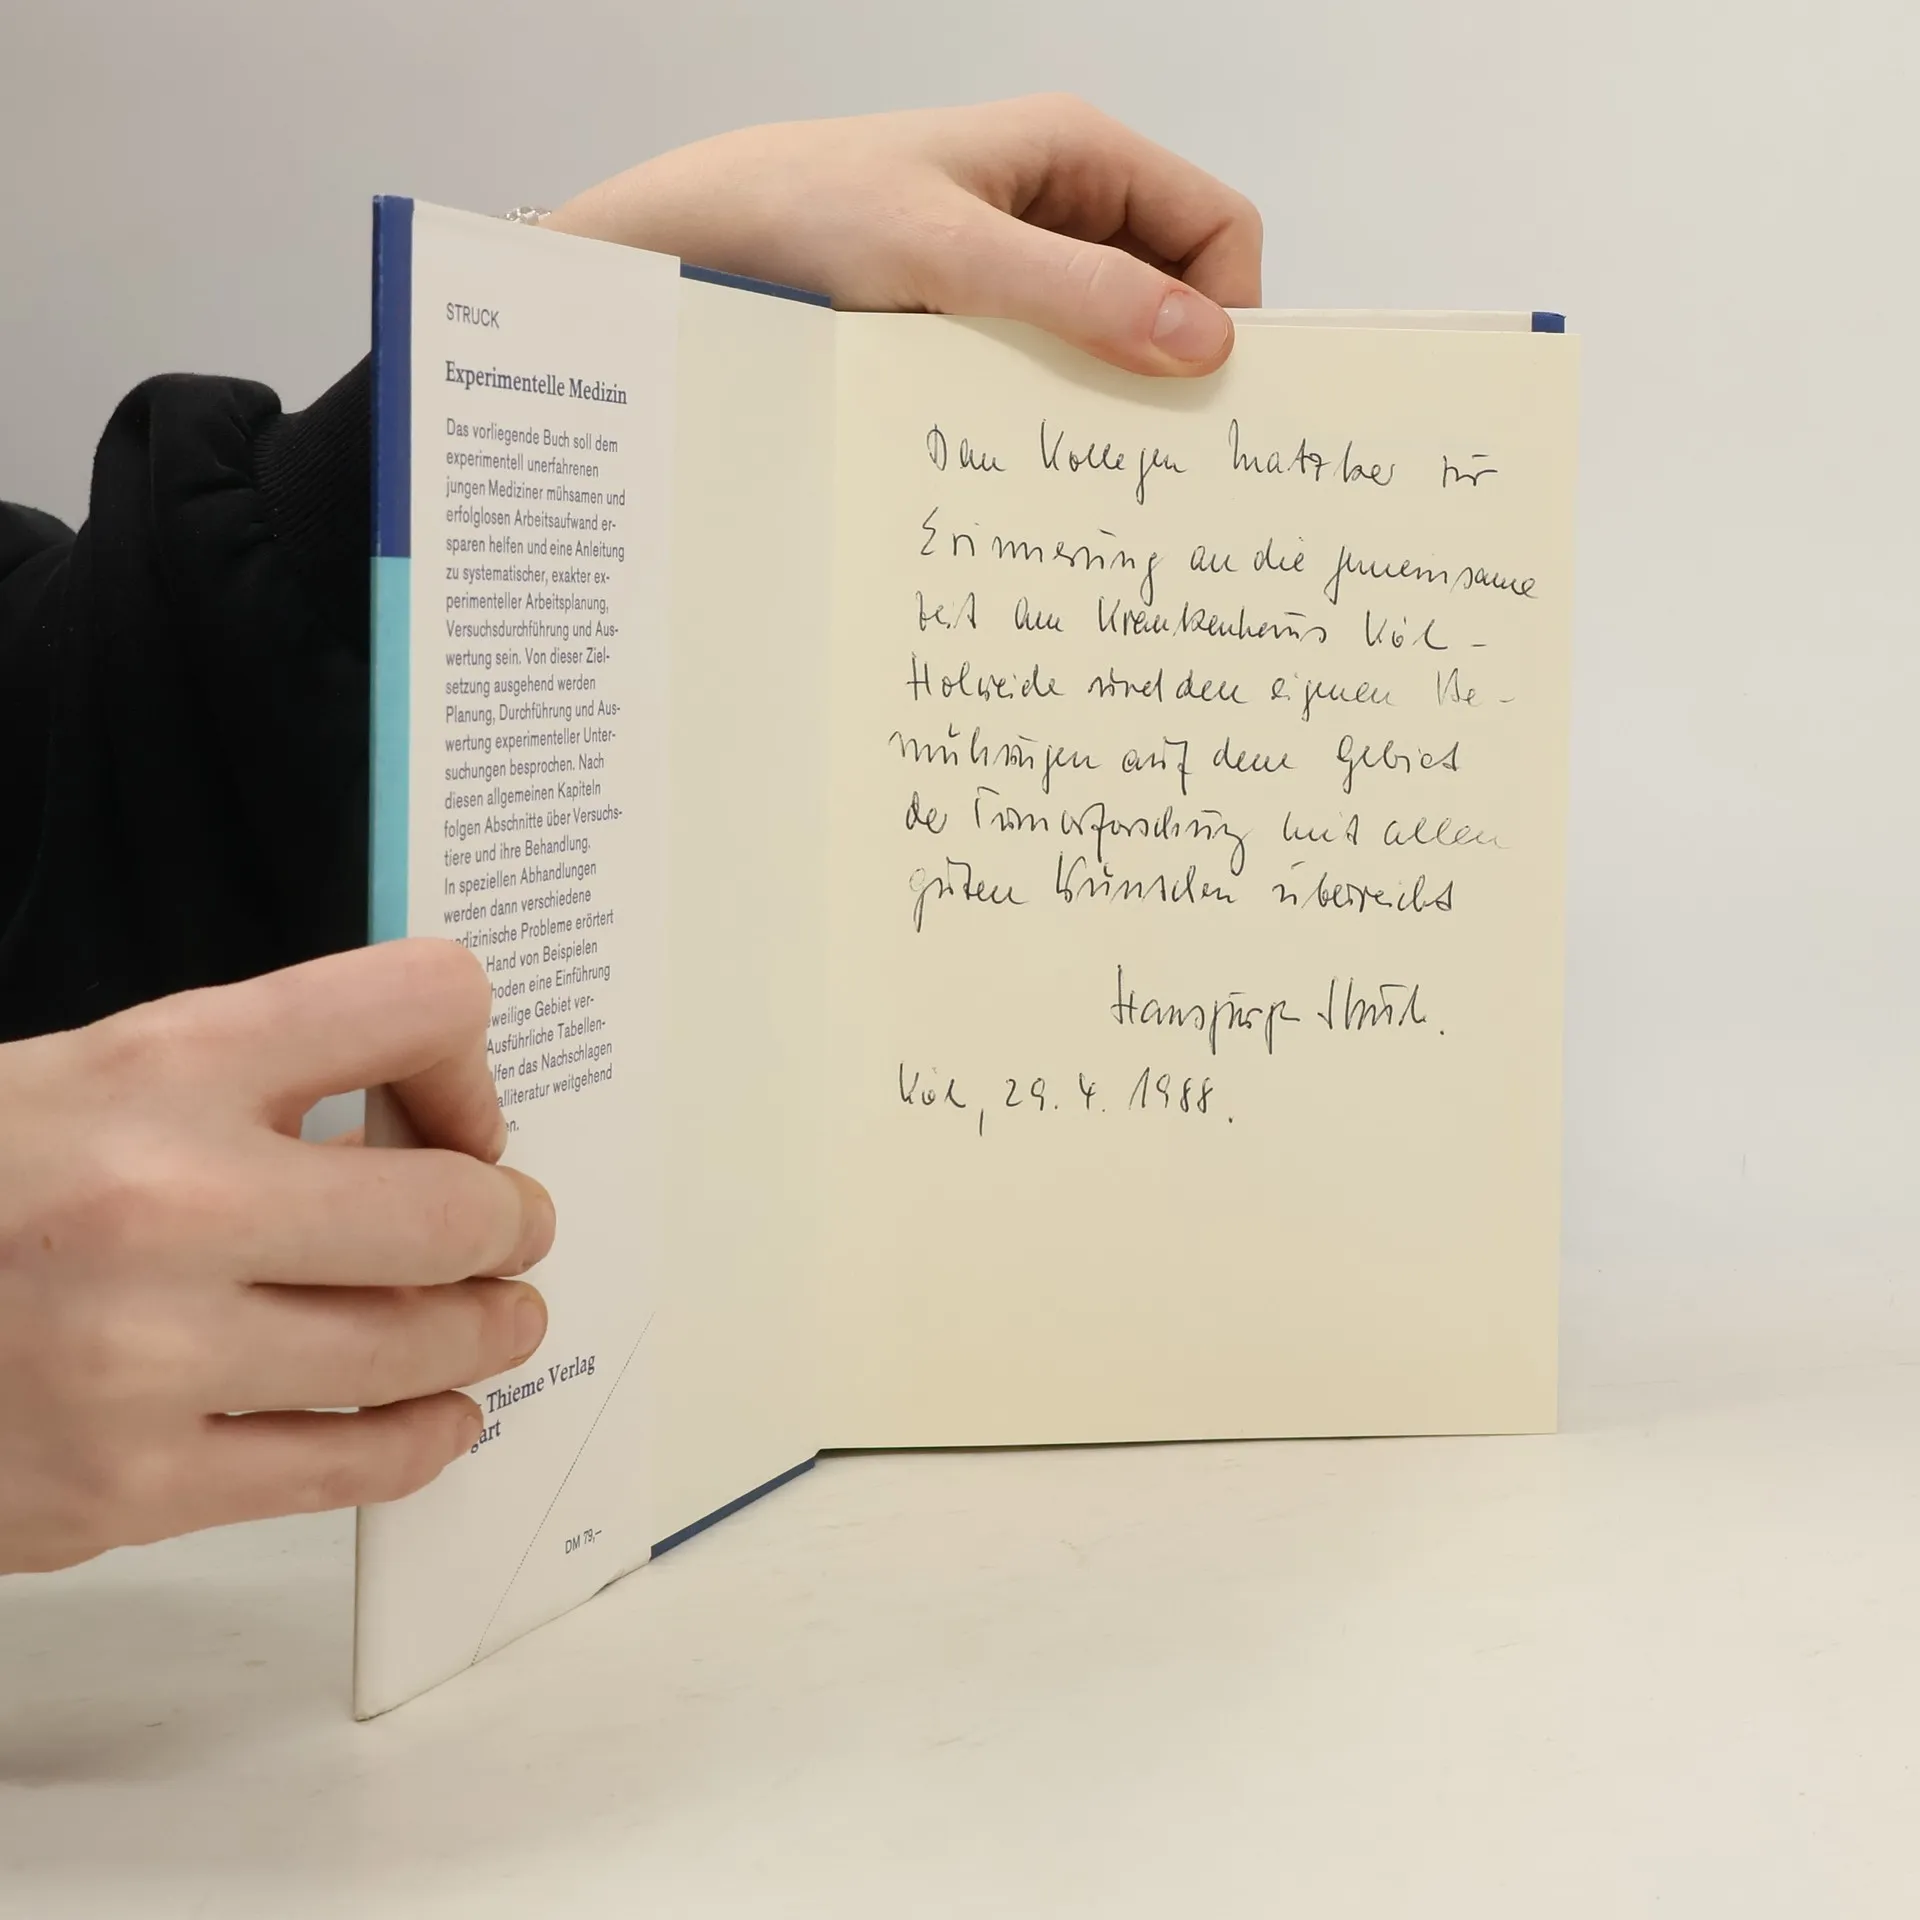 STRUCK
Experimentelle Medizin
Das vorliegende Buch soll dem
experimentell unerfahrenen
jungen Mediziner mühsamen und
erfolglosen Arbeitsaufwand er-
sparen helfen und eine Anleitung
zu systematischer, exakter ex-
perimenteller Arbeitsplanung,
Versuchsdurchführung und Aus-
wertung sein. Von dieser Ziel-
setzung ausgehend werden
Planung, Durchführung und Aus-
wertung experimenteller Unter-
suchungen besprochen. Nach
diesen allgemeinen Kapiteln
folgen Abschnitte über Versuchs-
tiere und ihre Behandlung.
In speziellen Abhandlungen
werden dann verschiedene
dizinische Probleme erörtert
Hand von Beispielen
hoden eine Einführung
weilige Gebiet ver-
Ausführliche Tabellen-
lfen das Nachschlagen
alliteratur weitgehend
en.
Thieme Verlag
gart
DM 79,–
Dem Kollegen Matzker zur
Erinnerung an die gemeinsame
Zeit am Krankenhaus Köln-
Holweide und den eigenen Be-
mühungen auf dem Gebiet
der Tumorforschung mit allen
guten Wünschen überreicht
Hansjürgen Struck.
Köln, 29. 4. 1988.